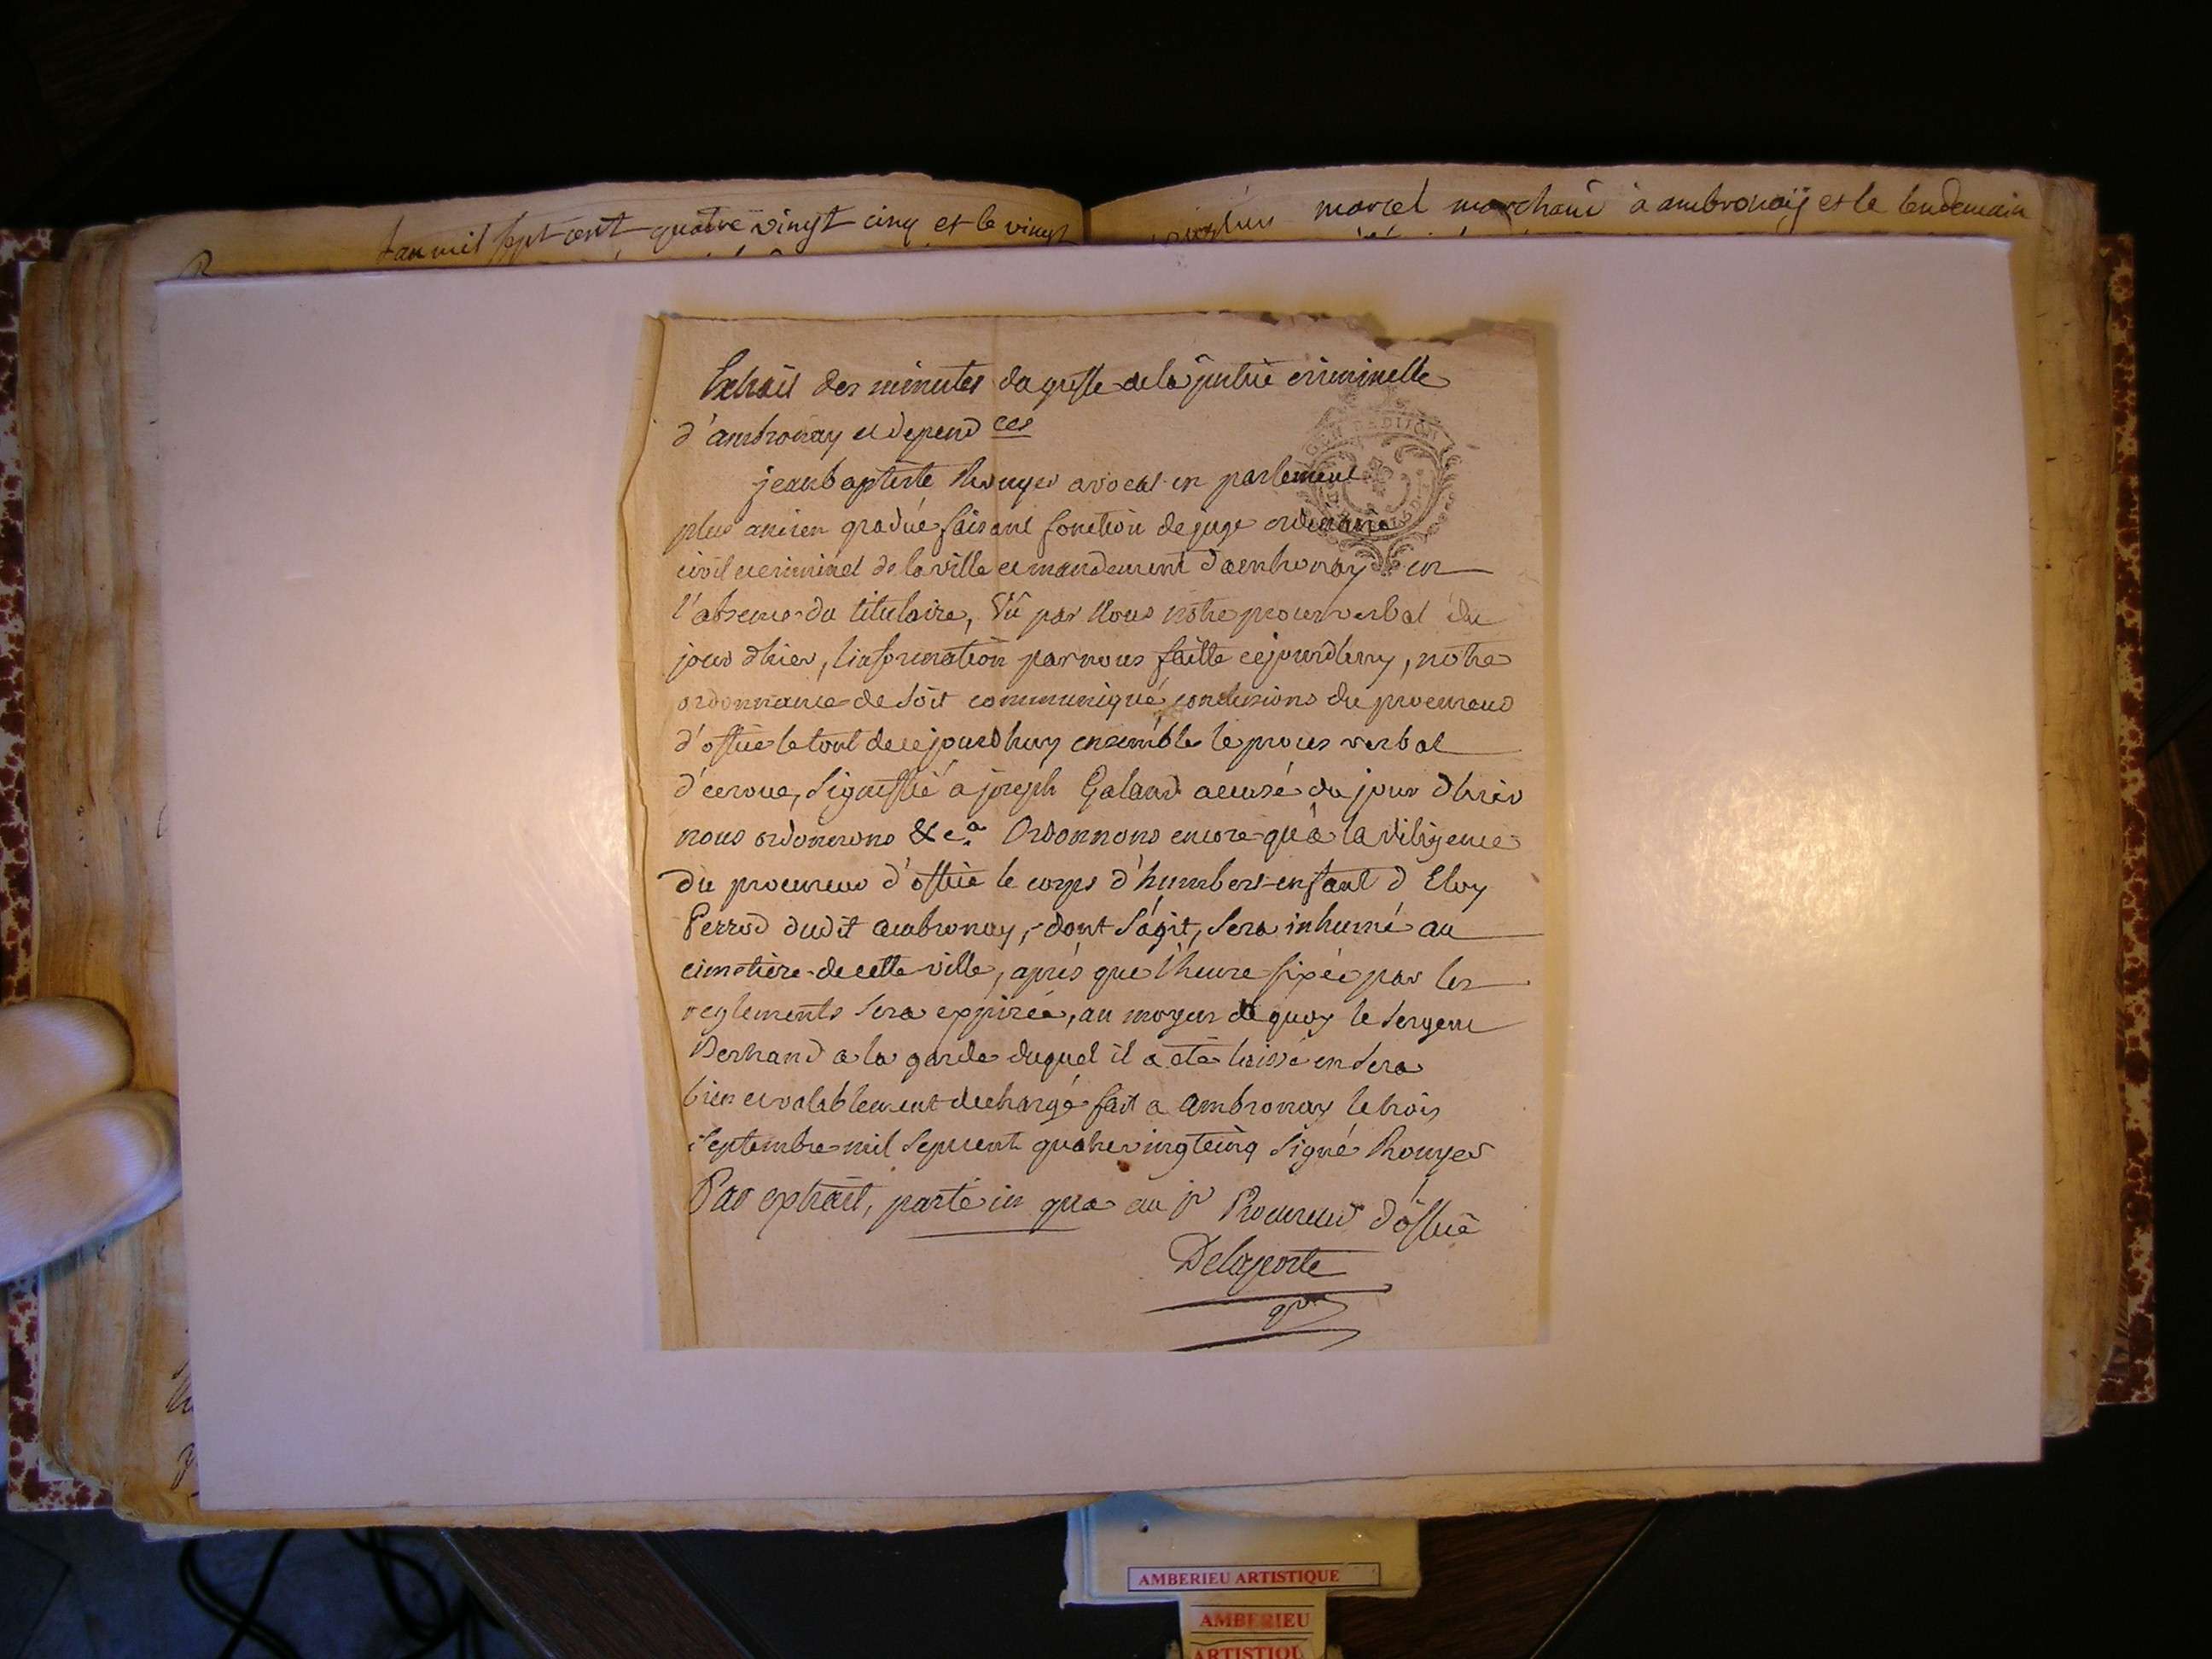 Lan mil sept cent quatre vingt cinq et le vingt
marcel marchand à ambronaÿ et le lendemain
Extrait des minutes du greffe de la justice criminelle
d'ambronay et depend ces
jean baptiste Rouyer avocat en parlement
plus ancien gradué faisant fonction de juge ordinaire
civil et criminel de la ville et mandement d'ambronay en
l'absence du titulaire, Vû par Nous notre procès verbal du
jour d'hier, l'information par nous faitte cejourdhuy, notre
ordonnance de soit communiqué, conclusions du procureur
d'office le tout de cejourdhuy ensemble le procès verbal
d'ecroue, signiffié a joseph Galand accusé du jour d'hier
nous ordonnons &c.a Ordonnons encore qu'à la diligence
du procureur d'office le corps d'humbert enfant d'Eloy
Perrod dudit ambronay, dont s'agit, sera inhumé au
cimetière de cette ville, après que l'heure fixée par les
reglements sera expirée, au moyen de quoy le sergent
a la garde duquel il a été laissé en sera
bien et valablement dechargé fait a ambronay le trois
septembre mil sept cent quatre vingt cinq Signé Rouyer
Par extrait, parte in qua au Sr Procureur d'office
Delaporte
GEN DE DIJON
AMBERIEU ARTISTIQUE
AMBERIEU
ARTISTIQU